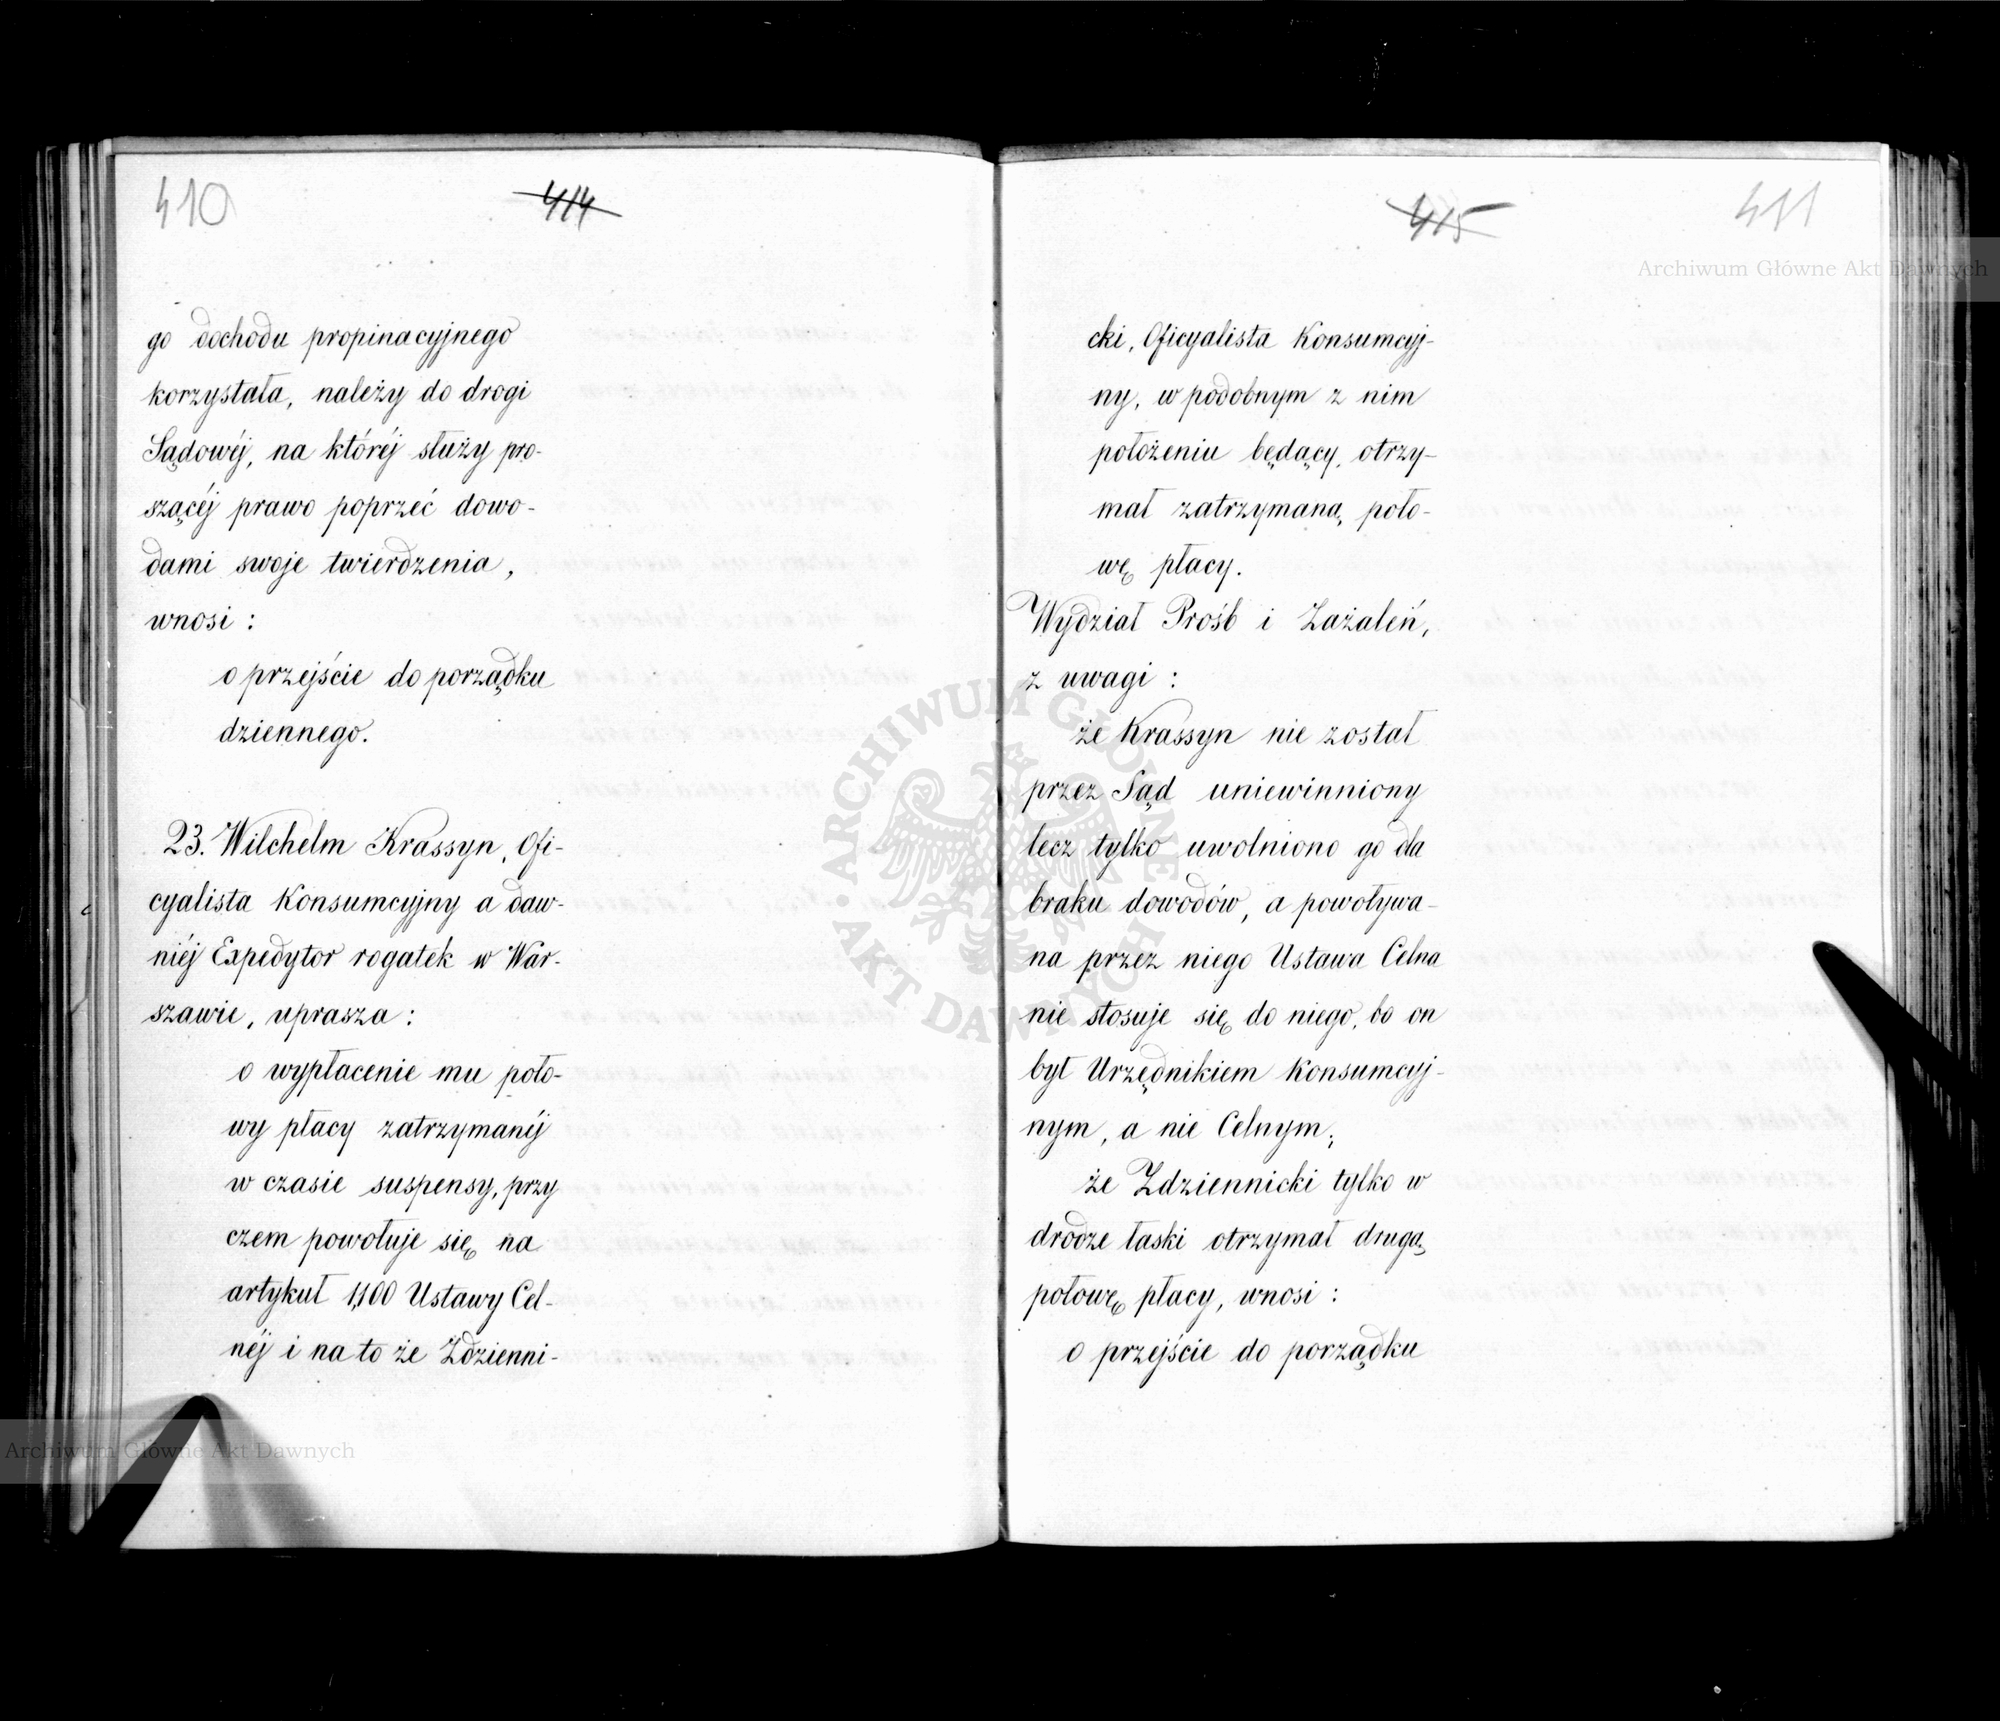 410
414
go dochodu propinacyjnego
korzystała, należy do drogi
Sądowéj, na któréj służy pro-
szącéj prawo poprzeć dowo-
dami swoje twierdzenia,
wnosi :
o przejście do porządku
dziennego.
23. Wilchelm Krassyn, Ofi-
cyalista Konsumcyjny a daw-
niéj Expedytor rogatek w War-
szawie, uprasza :
o wypłacenie mu poło-
wy płacy zatrzymanéj
w czasie suspensy, przy
czem powołuje się na
artykuł 1,100 Ustawy Cel-
néj i na to że Zdzienni-
415
411
cki, Oficyalista Konsumcyj-
ny, w podobnym z nim
położeniu będący, otrzy-
mał zatrzymaną poło-
wę płacy.
Wydział Prośb i Zażaleń,
z uwagi :
że Krassyn nie został
przez Sąd uniewinniony
lecz tylko uwolniono go dla
braku dowodów, a powoływa-
na przez niego Ustawa Celna
nie stosuje się do niego, bo on
był Urzędnikiem Konsumcyj-
nym, a nie Celnym;
że Zdziennicki tylko w
drodze łaski otrzymał drugą
połowę płacy, wnosi :
o przejście do porządku
Archiwum Główne Akt Dawnych
ARCHIWUM GŁÓWNE AKT DAWNYCH
Archiwum Główne Akt Dawnych